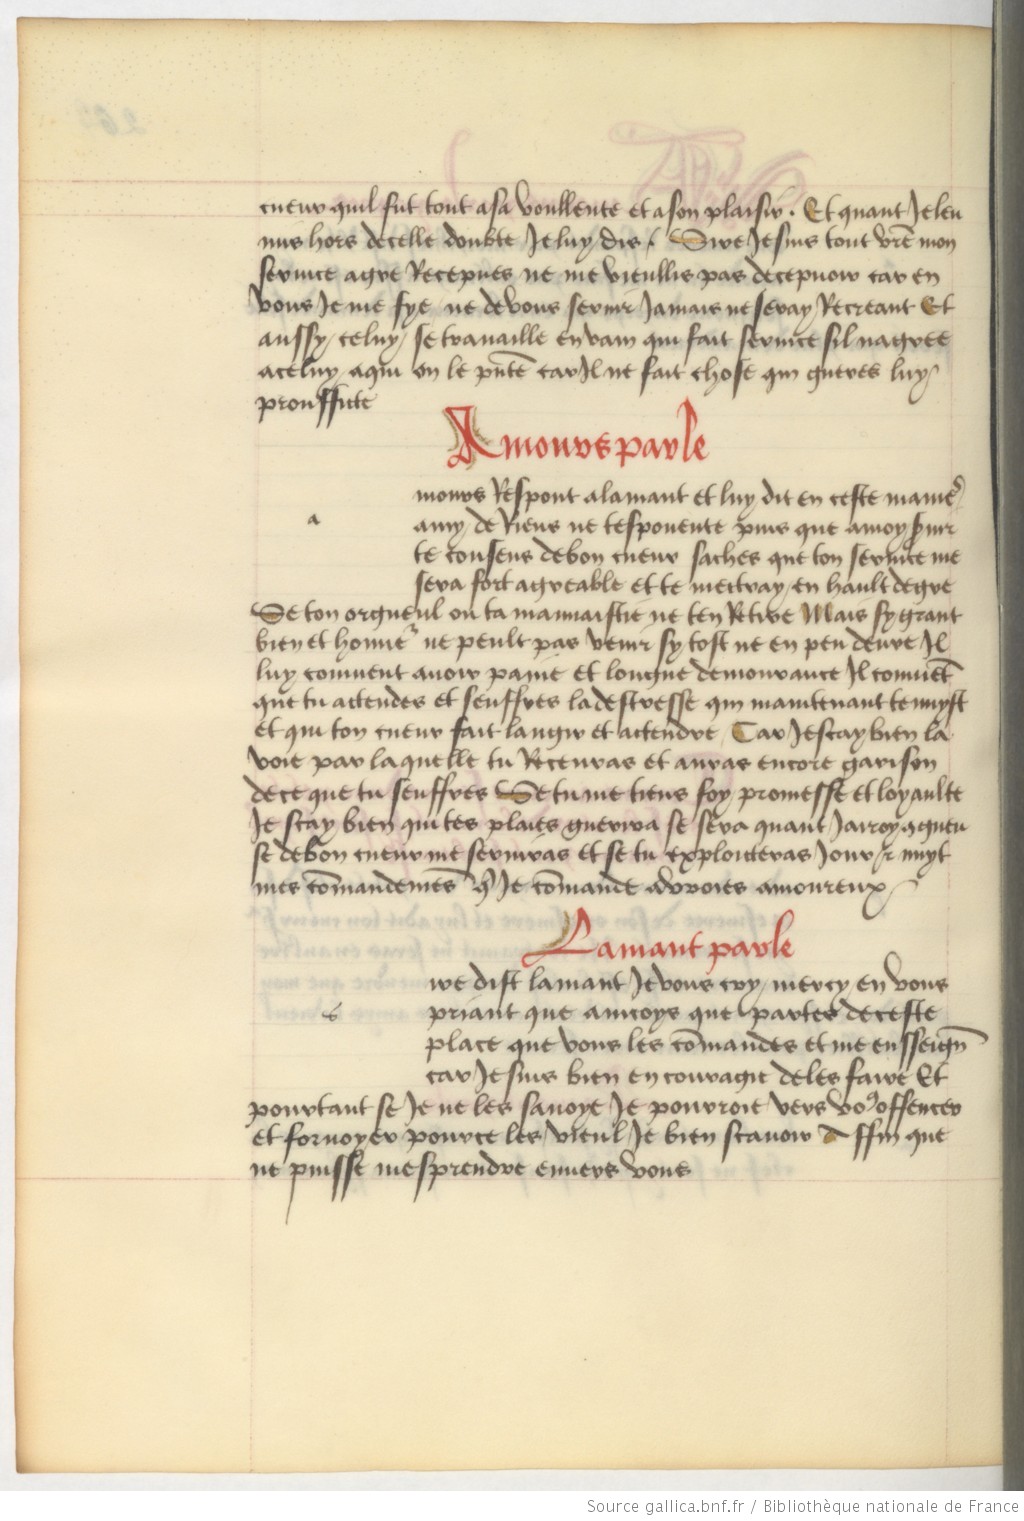 cueur quil fut tout asa voullente et ason plaisir. Et quant Jeleu
mis hors decelle doubte Je luy dis / Sire Je suis tout vr̃e mon
service agre Recepues ne me vieullis pas decepuoir car en
vous Je me fye ne de vous servir Jamais ne seray Recreant Et
aussy celuy se travaille en vain qui fait service sil nagree
aceluy aqui on le pñte car Il ne fait chose qui gueres luy
prouffite
Amours parle
a
mours Respont alamant et luy dit en ceste manie
amy de Riens ne tesponente puis que amoy servir
te consens debon cueur saches que ton service me
sera fort agreable et te mettray en hault degre
Se ton orgueul ou ta mauuaistie ne ten Retire Mais sy grant
bien et honne ne peult pas venir sy tost ne en peu deure Il
luy convient avoir paine et longue demourance Il convient
que tu attendes et seuffres ladestresse qui maintenant te nuyst
et qui ton cueur fait languir et attendre Car Je scay bien la
voie par laquelle tu Recevras et auras encore garison
dece que tu seuffres Se tu me tiens foy promesse et loyaulte
Je scay bien qui tes plaies guerira se sera quant
se debon cueur me serviras et se tu exploicteras Jour et nuyt
mes cõmandemẽs Je cõmande amoureux
Lamant parle
s
ire dist lamant Je vous cry mercy en vous
priant que aincoys que partes deceste
place que vous les cõmandes et me ensseign
car Je suis bien en couragie deles faire Et
pourtant se Je ne les savoye Je pourroie vers vo9 offencer
et forvoyer pource les vieul Je bien scavoir A ffin que
ne puisse mesprendre envers vous
Source gallica.bnf.fr / Bibliothèque nationale de France